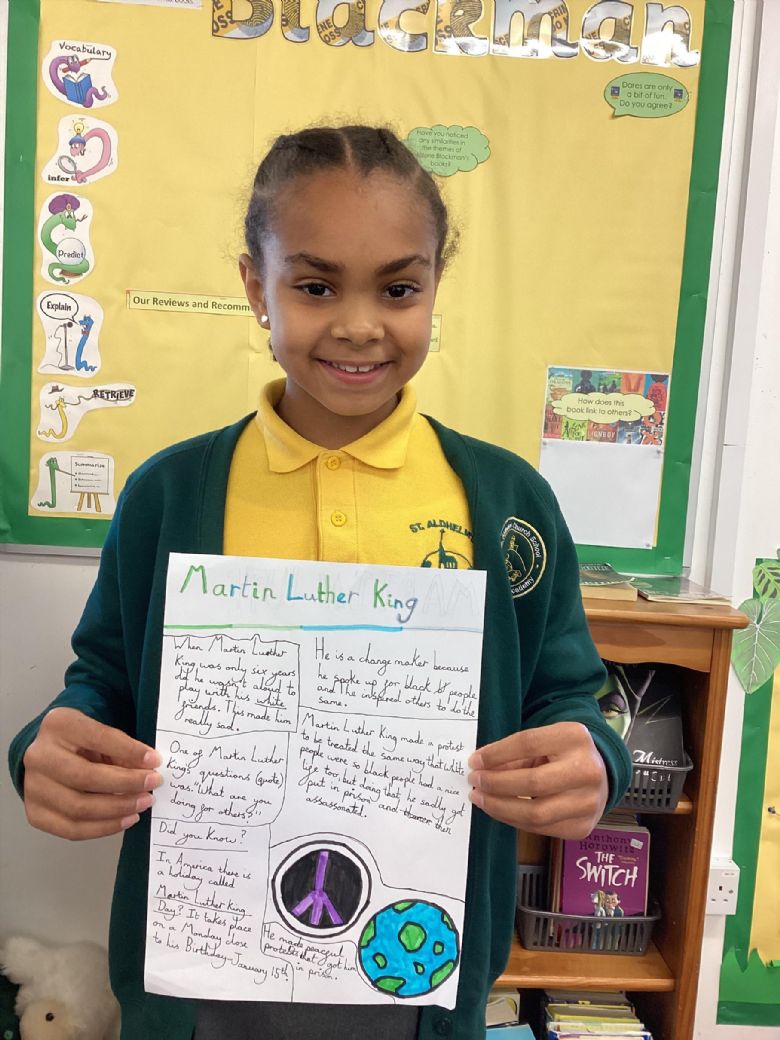 Blackman
Vocabulary
infer
Predict
Explain
RETRIEVE
Summarise
Dares are only
a bit of fun.
Do you agree?
Have you noticed
any similarities in
the themes of
Blackman's
books?
Our Reviews and Recomm
How does this
book link to others?
ST. ALDHELM
Church School
Academy
Martin Luther King
When Martin Luther
King was only six years
old he wasn't aloud to
play with his white
friends. This made him
really sad.
He is a change maker because
he spoke up for black people
and he inspired others to do the
same.
One of Martin Luther
King's questions (quote)
was: "What are you
doing for others?"
Martin Luther King made a protest
to be treated the same way that white
people were so black people had a nice
life too, but doing that, he sadly got
put in prison and then
assassonated.
Did you Know?
In America there is
a holiday called
Martin Luther King
Day? It takes place
on a Monday close
to his Birthday-January 15th!
He made peaceful
protests that got him
in prison.
Mistress
Anthony
Horowitz
THE
SWITCH